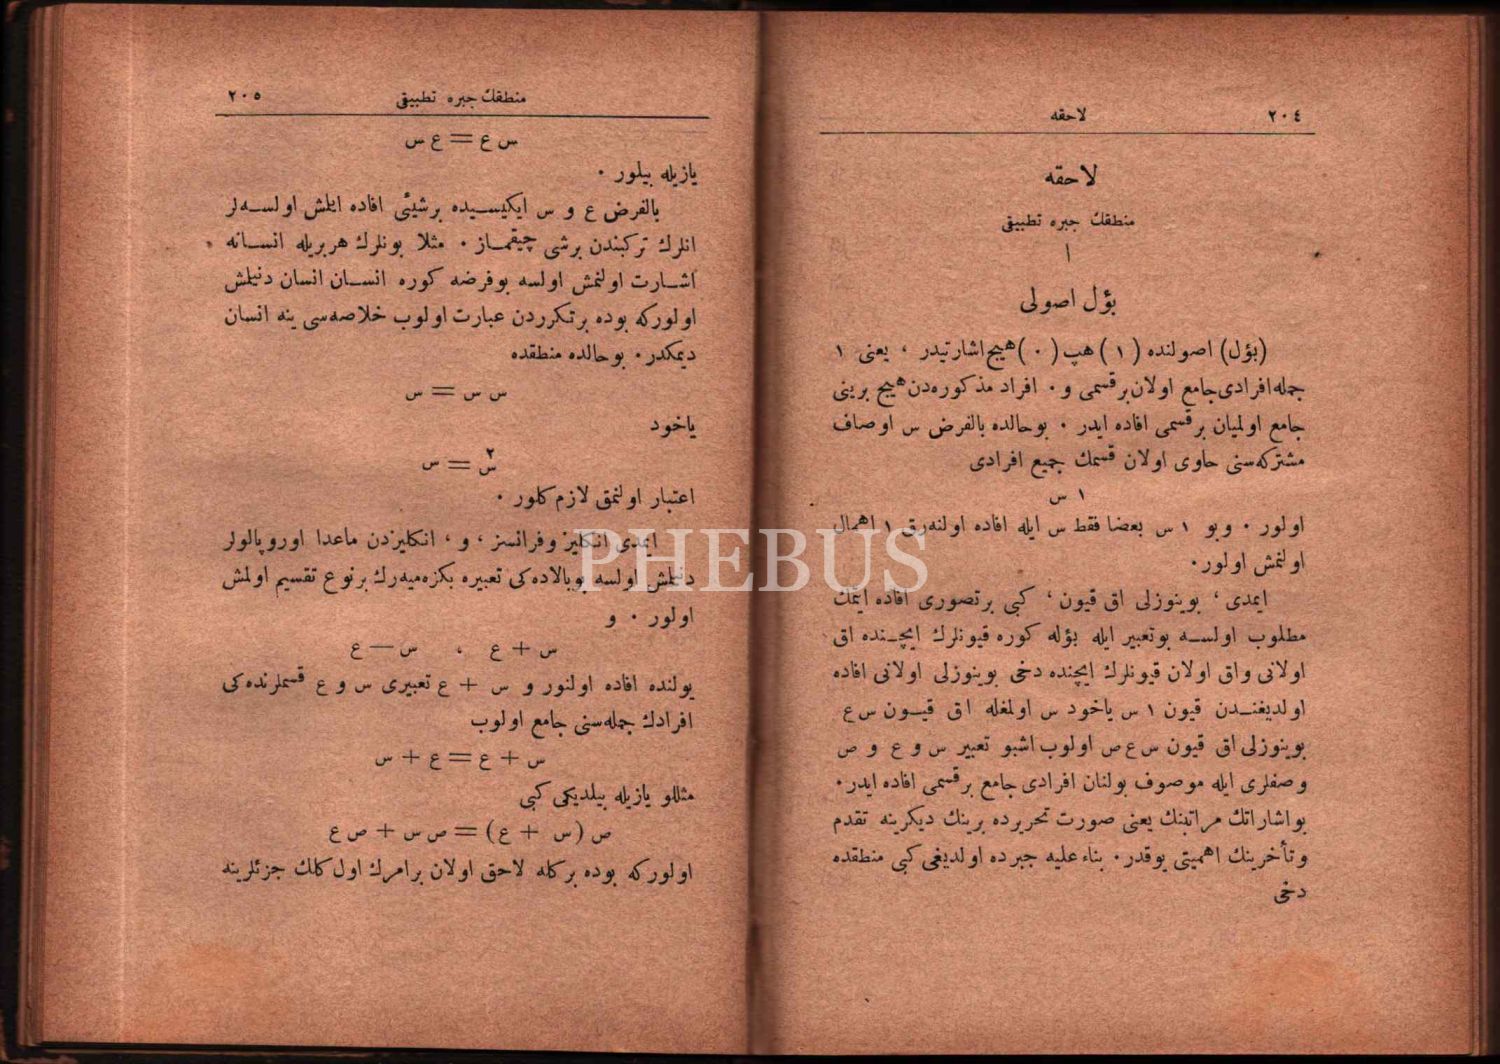 ٢٠٤ لاحقه
لاحقه
منطقك جبره تطبيقى
١
بؤل اصولى
(بؤل) اصولنده (١) هپ (٠) هيچ اشارتيدر ، يعنى ١
جمله افرادى جامع اولان برقسمى و ٠ افراد مذكوره‌دن هيچ برينى
جامع اولميان برقسمى افاده ايدر ٠ بوحالده بالفرض س اوصاف
مشتركه‌سنى حاوى اولان قسمك جميع افرادى
١ س
اولور ٠ وبو ١ س بعضا فقط س ايله افاده اولنه‌رق ١ اهمال
اولنمش اولور ٠
ايمدى ، بوينوزلى اق قيون ، كبى برتصورى افاده ايتمك
مطلوب اولسه بوتعبير ايله بؤله كوره قيونلرك ايچنده اق
اولانى واق اولان قيونلرك ايچنده دخى بوينوزلى اولانى افاده
اولديغندن قيون ١ س ياخود س اولمغله اق قيون س ع
بوينوزلى اق قيون س ع ص اولوب اشبو تعبير س و ع و ص
وصفلرى ايله موصوف بولنان افرادى جامع برقسمى افاده ايدر ٠
بو اشاراتك مراتبنك يعنى صورت تحريرده برينك ديكرينه تقدم
وتأخرينك اهميتى يوقدر ٠ بناء عليه جبرده اولديغى كبى منطقده
دخى
منطقك جبره تطبيقى ٢٠٥
س ع = ع س
يازيله بيلور ٠
بالفرض ع و س ايكيسيده برشيئى افاده ايلمش اولسه‌لر
انلرك تركبندن برشى چيقماز ٠ مثلا بونلرك هربريله انسانه
اشارت اولنمش اولسه بوفرضه كوره انسان انسان دنيلمش
اولوركه بوده برتكرردن عبارت اولوب خلاصه‌سى ينه انسان
ديمكدر ٠ بوحالده منطقده
س س = س
ياخود
س٢ = س
اعتبار اولنمق لازم كلور ٠
ايمدى انكليز وفرانسز ، و ، انكليزدن ماعدا اوروپالولر
دنيلمش اولسه بوبالاده‌كى تعبيره بكزه‌ميه‌رك برنوع تقسيم اولمش
اولور ٠ و
س + ع ، س — ع
يولنده افاده اولنور و س + ع تعبيرى س و ع قسملرنده‌كى
افرادك جمله‌سنى جامع اولوب
س + ع = ع + س
مثللو يازيله بيلديكى كبى
ص (س + ع) = ص س + ص ع
اولوركه بوده بركله لاحق اولان برامرك اول كلك جزئلرينه
PHEBUS